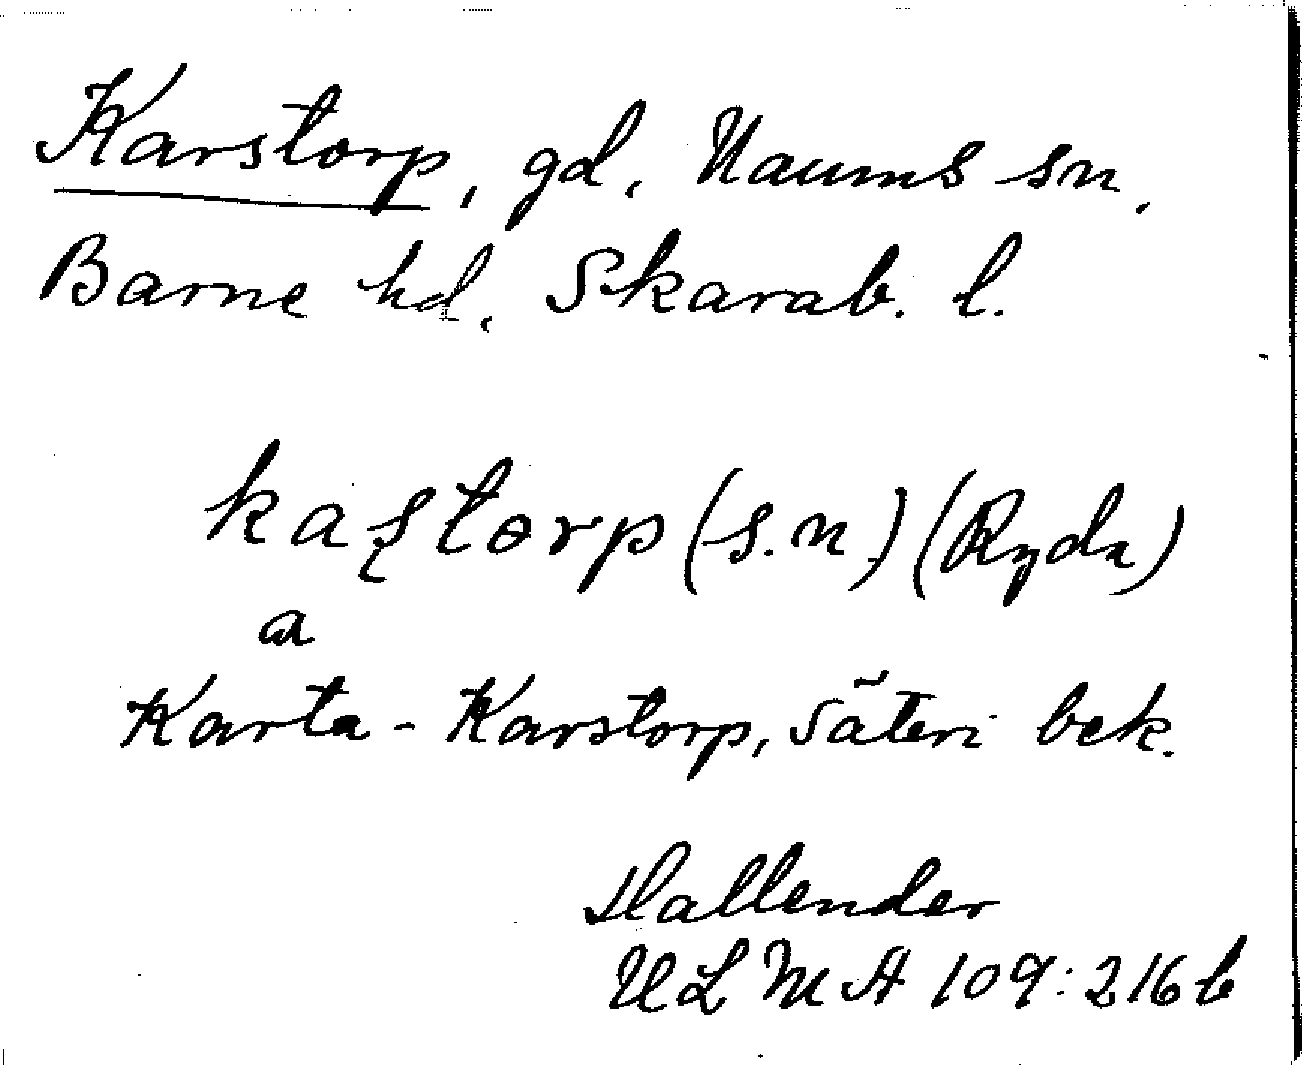 Karstorp, gd, Naums sn,
Barne hd, Skarab. l.
kaʂtorp (s.n.) (Ryda)
a
Karta - Karstorp, Säteri bek.
Hallender
ULMA 109:216b